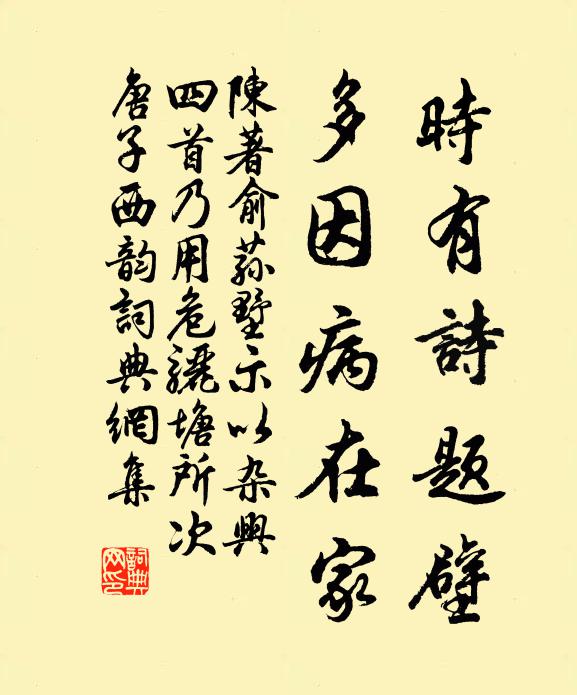 時有詩题壁
多因病在家
陳著俞蓀墅示以杂興
四首乃用危驪塘所次
唐子西韵詞典網集
詞典网印